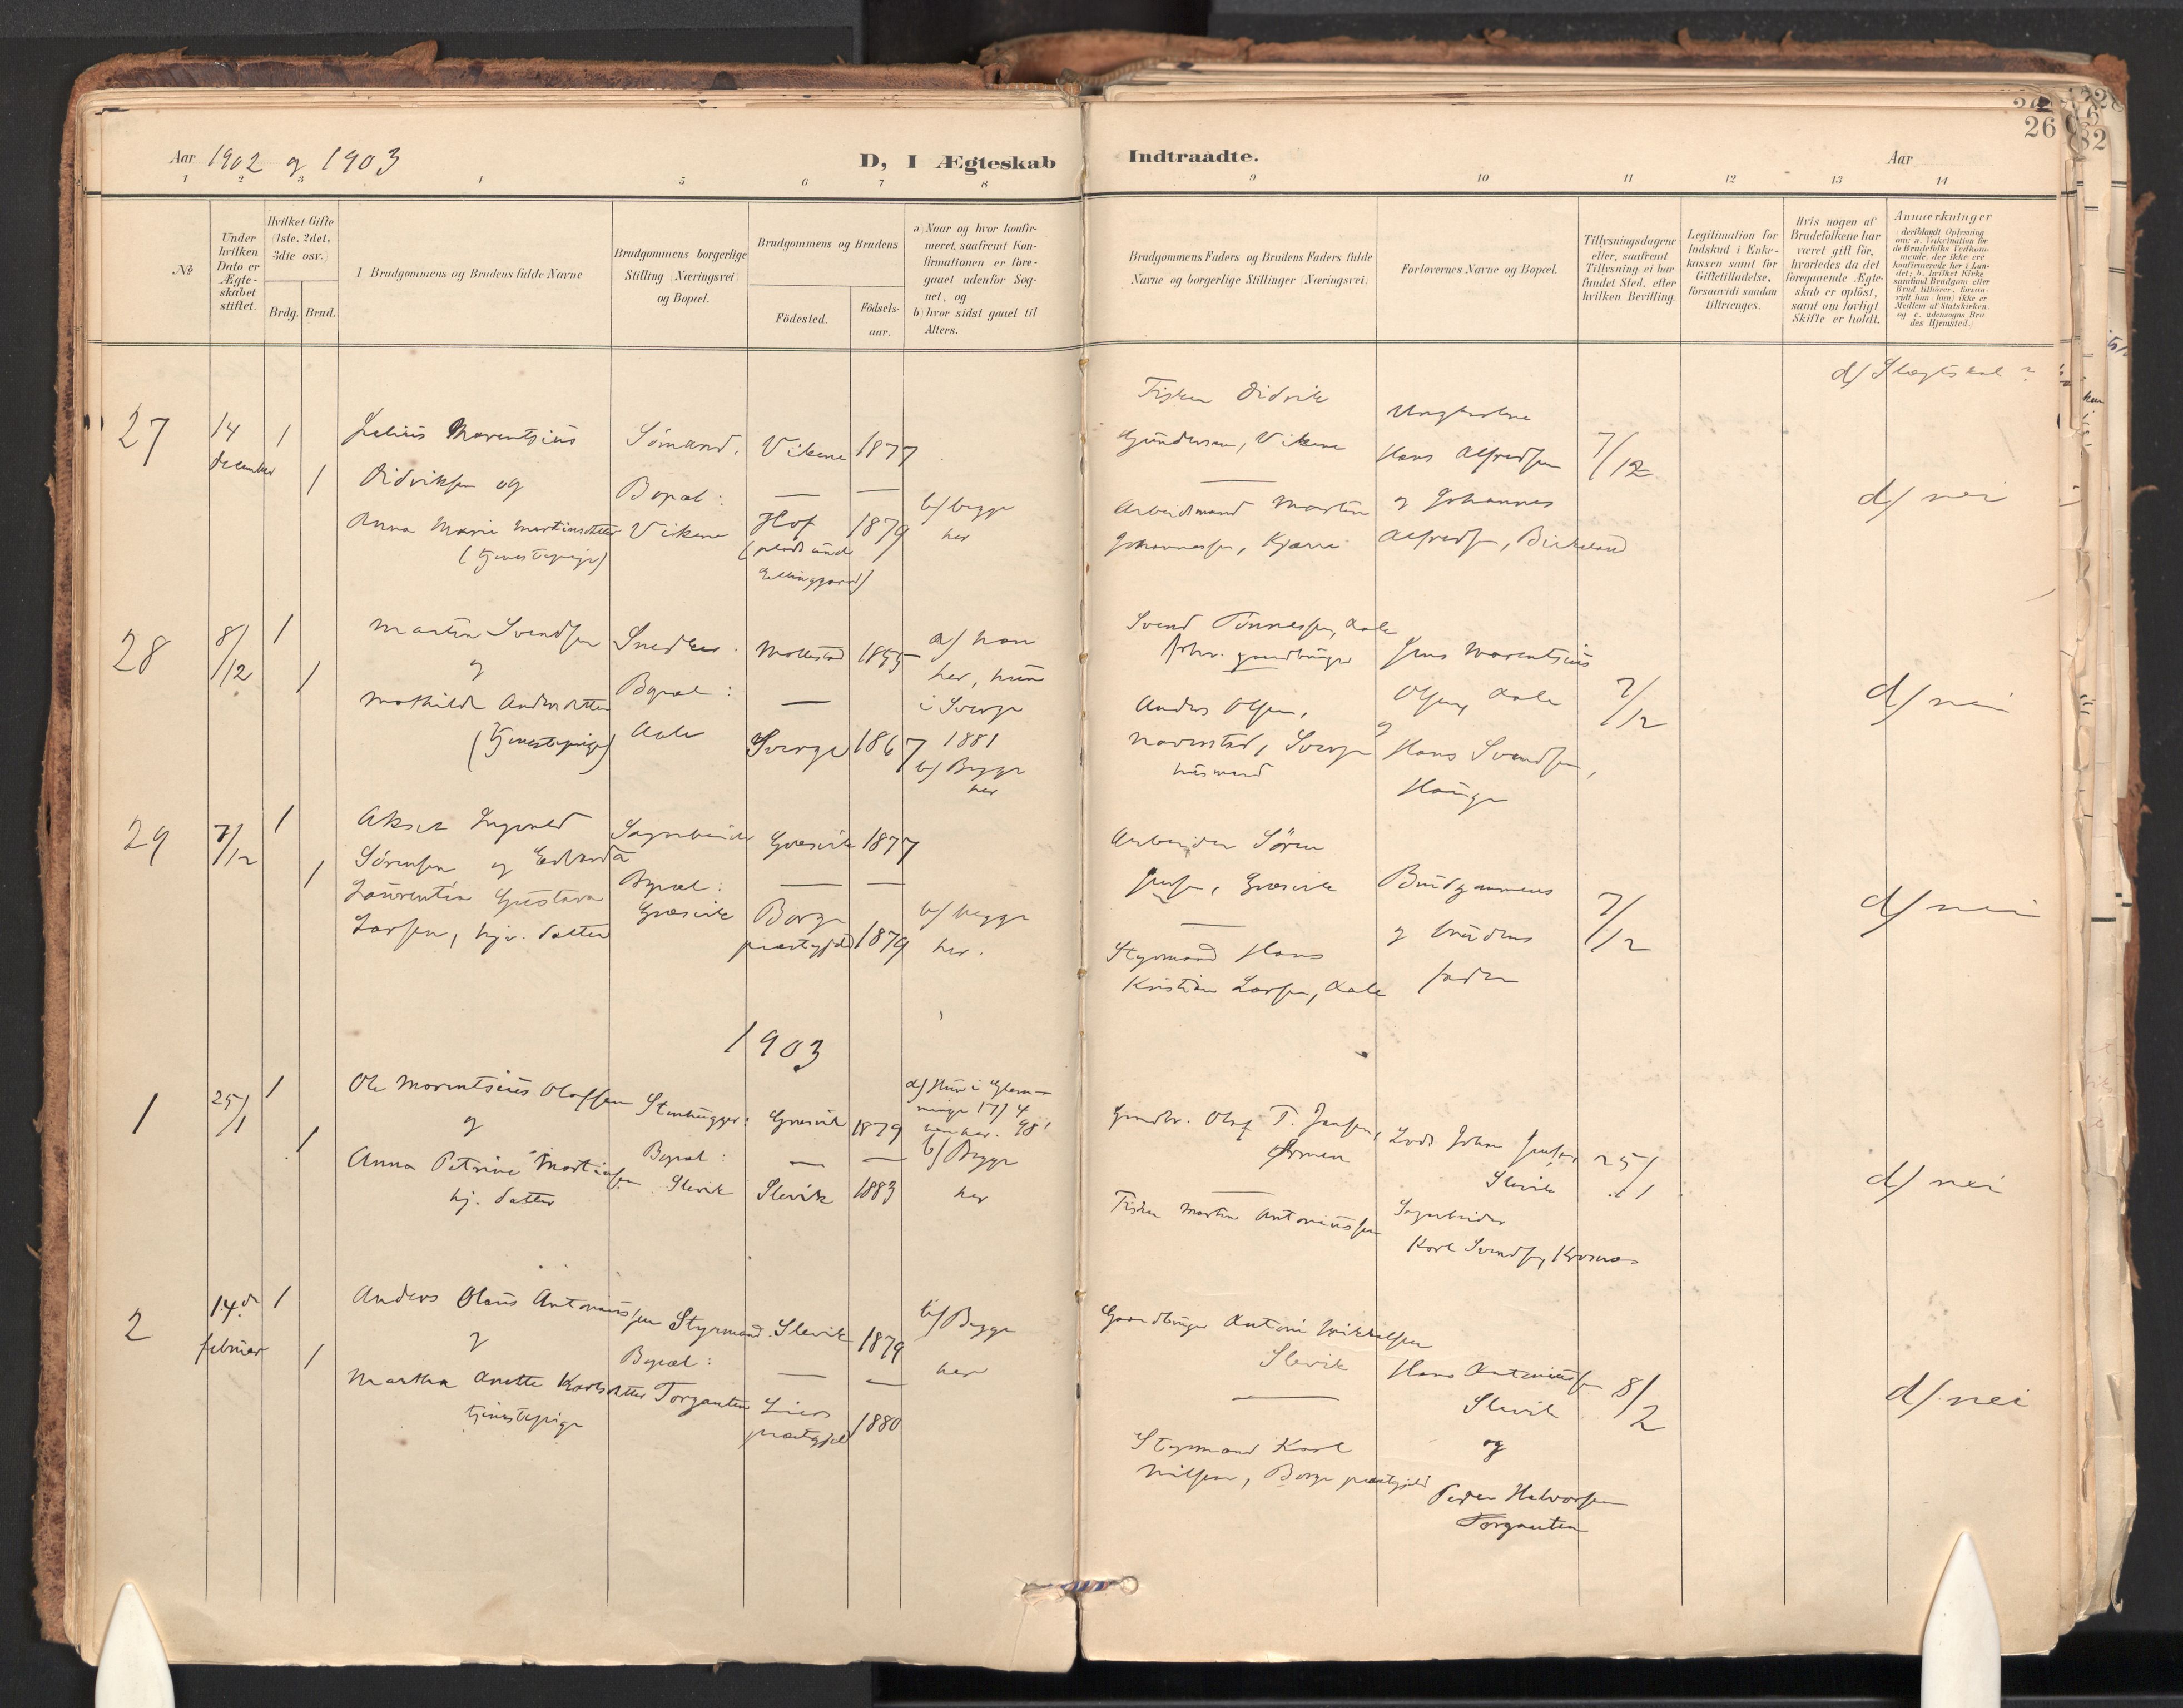 Aar 1902 og 1903
D, I Ægteskab Indtraadte.
Aar
26
1 2 3 4 5 6 7 8 9 10 11 12 13 14
№
Under hvilken Dato er Ægteskabet stiftet.
Hvilket Gifte (1ste, 2det, 3die osv.)
Brdg. Brud.
I Brudgommens og Brudens fulde Navne
Brudgommens borgerlige Stilling (Næringsvei) og Bopæl.
Brudgommens og Brudens
Födested.
Födsels-aar.
a) Naar og hvor konfirmeret, saafremt Konfirmationen er foregaaet udenfor Sognet, og
b) hvor sidst gaaet til Alters.
Brudgommens Faders og Brudens Faders fulde Navne og borgerlige Stillinger (Næringsvei)
Forlovernes Navne og Bopæl.
Tillysningsdagene eller, saafremt Tillysning ei har fundet Sted, efter hvilken Bevilling.
Legitimation for Indskud i Enkekassen samt for Giftetilladelse, forsaavidt saadan tiltrænges.
Hvis nogen af Brudefolkene har været gift før, hvorledes da det foregaaende Ægteskab er opløst, samt om lovligt Skifte er holdt.
Anmærkninger
d/ Slegtskab?
27
14 december
1
1
Julius Marentsius
Didriksen og
Anna Marie Martinsdatter
(tjenestepige)
Sømand.
Bopæl:
Vikene
Vikene 1877
Hof 1879
(plads under
Ellinggaard)
b/ begge
her
Fisker Didrik
Gundersen, Vikene
Arbeidsmand Martin
Johannessen, Kjære
Ungkarlene
Hans Alfredsen
og Johannes
Alfredsen, Birkeland
7/12
d/ nei
28
8/12
1
1
Martin Svendsen
og
Mathilde Andersdatter
(tjenestepige)
Snedker.
Bopæl:
Aale
1855
Sverge 1867
a/ han
her, hun
i Sverge
1881
b/ Begge
her
Svend Tønnessen, Aale
forhv. gaardbruger
Anders Olsen,
Sverge
husmand
Jens Marentsius
Olsen, Aale
og
Hans Svendsen,
Hauge
7/12
d/ nei
29
7/12
1
1
Aksel Ingvald
Sørensen og Edvarda
Laurentia Gustava
Larsen, hjv. datter
Sagarbeider
Bopæl:
Græsvik
Græsvik 1877
Borge
præstegjeld 1879
b/ begge
her.
Arbeider Sören
Jensen, Græsvik
Styrmand Hans
Kristian Larsen, Aale
Brudgommens
og brudens
fader
7/12
d/ nei
1903
1
25/1
1
1
Ole Marentsius Olafsen
og
Anna Petrine Martinsen
hj. datter
Stenhugger:
Bopæl:
Slevik
Græsvik 1879
Slevik 1883
a/ Hun i Glem-
minge 17/4
98
b/ Begge
her
Gaardbr. Olaf T. Jensen,
Ørmen
Fisker Martin Antoniussen
Lods Johan Jensen,
Slevik
Sagarbeider
Karl Svendsen, Krosnes
25/1
d/ nei
2
14de februar
1
1
Anders Olaus Antoniussen
og
Martha Anette Karlsdatter
tjenestepige
Styrmand.
Bopæl:
Torgauten
Slevik 1879
præstegjeld 1880
b/ Begge
her
Gaardbruger Antoni Mikkelsen
Slevik
Styrmand Karl
Nilsen, Borge præstegjeld
Hans Antoniussen
Slevik
og
Peder Halvorsen
Torgauten
8/2
d/ nei